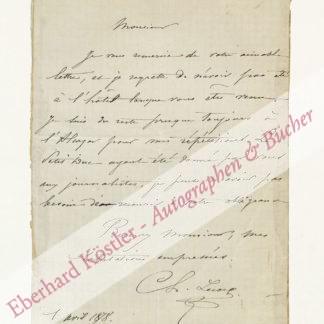 Monsieur
Je vous remercie de votre aimable
lettre, et je regrette de n'avoir pas été
à l'hôtel lorsque vous êtes venu
Je suis du reste presque toujours à
l'Alcazar pour mes répétitions
Petit Duc ayant été donné
aux journalistes, je pas
besoin de votre obligeance
Monsieur, mes
salutations empressées.
Ch. Lecocq
1 avril 188
Eberhard Köstler - Autographen & Bücher